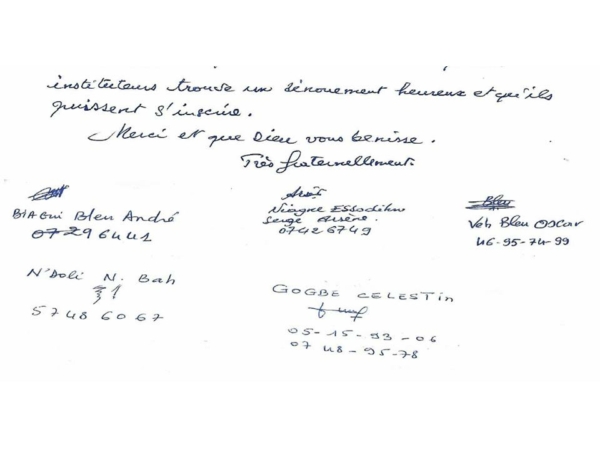 instituteurs trouve un dénouement heureux et qu'ils
puissent s'inscrire.
Merci et que Dieu vous benisse.
Très fraternellement.
BIAGui Bleu André
07296441
Niagne Essodihu
Serge Arsène.
07426749
Bleu
Veh Bleu Oscar
46-95-74-99
N'Doli N. Bah
57486067
GOGBE CELESTin
05-15-93-06
07 48-95-78